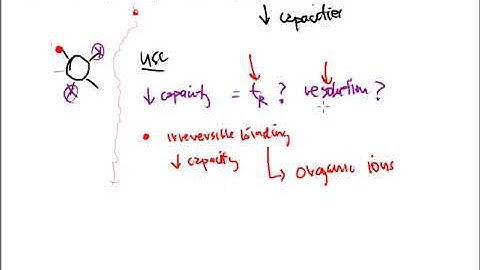 ↓ capacities
use
↓ capacity = tR ? resolution ?
• irreversible binding
↓ capacity
↳ organic ions